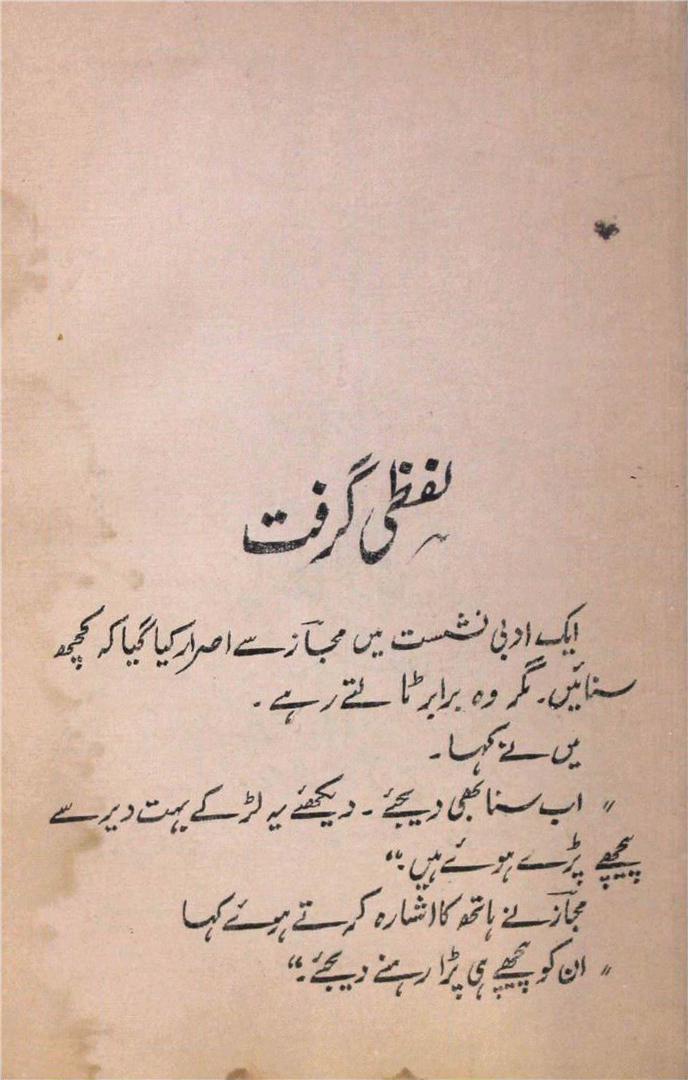 لفظی گرفت
ایک ادبی نشست میں مجازؔ سے اصرار کیا گیا کہ کچھ
سنائیں۔ مگر وہ برابر ٹالتے رہے۔
میں نے کہا۔
"اب سنا بھی دیجئے۔ دیکھئے یہ لڑکے بہت دیر سے
پیچھے پڑے ہوئے ہیں۔"
مجازؔ نے ہاتھ کا اشارہ کرتے ہوئے کہا
"ان کو پیچھے ہی پڑا رہنے دیجئے۔"